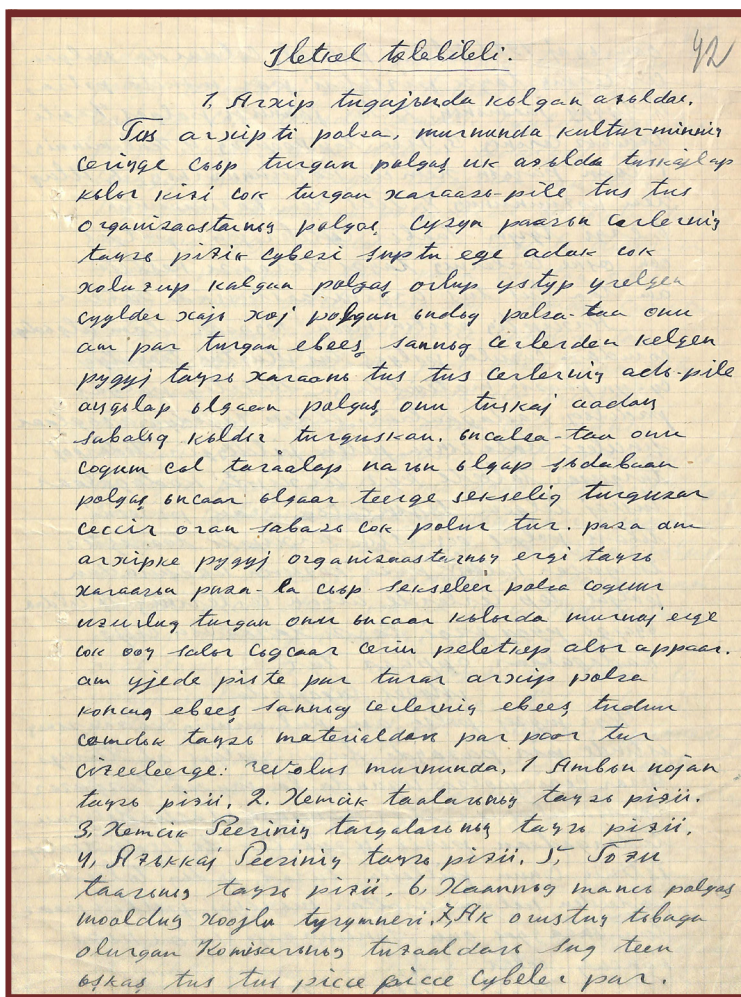 Iletkel tɵlebileli.
42
1. Arxip tugajьnda kьlgan aƶьldar.
Tus arxipti polza, murnunda kultur-minniŋ
ceriŋge cььp turgan polgaş uk aƶьlda tuskajlap
kьlьr kiƶi cok turgan xaraazь-pile tus tus
organizaastarnьŋ polgaş cyzyn paazьn cerlerniŋ
taŋzь piƶik cybezi şuptu ege adak cok
xoluƶup kalgan polgaş orlup ystyp yrelgen
cyylder xajь xoj polgan ьndьg polza-taa onu
am par turgan ebeeş sannьg cerlerden kelgen
pygyj taŋzь xaraanь tus tus cerlerniŋ adь-pile
aŋgьlap ьlgaan polgaş onu tuskaj aadaŋ
sabalьg kьldьr turguskan. ьncalza-taa onu
cogum col taraalap narьn ьlgap şьdabaan
polgaş ьncaar ьlgaar teerge sekselig turguzar
ceccir oran sabazь cok polur tur. paza am
arxipke pygyj organizaastarnьŋ ergi taŋzь
xaraazьn paza-la cььp sekseleer polza cogum
uƶurlug turgan onu ьncaar kьlьrda murnaj erge
cok ooŋ salьr cьgcaar cerin peletkep alьr appaar.
am yjede piste par turar arxip polza
koncug ebeeş sannьg cerlerniŋ ebeeş tudum
comdak taŋzь materialdarь par poor tur
ciƶeeleerge: revolus murnunda, 1 Ambьn nojan
taŋzь piƶii. 2. Xemcik taalarьnьŋ taŋzь piƶii.
3. Xemcik Peeziniŋ targalarьnьŋ taŋzь piƶii.
4. Aƶьkkaj Peeziniŋ taŋzь piƶii. 5. Toƶu
taarьnьŋ taŋzь piƶii. 6. Xaannьg mancь polgaş
mooldug xoojlu tyrymneri. 7. Ak orustuŋ tьbaga
olurgan Komisarьnьŋ tuƶaaldarь şug teen
ьşkaş tus tus picce picce cybeler par.